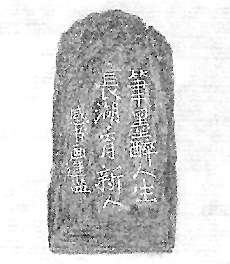 筆墨醉人生
長湖育新人